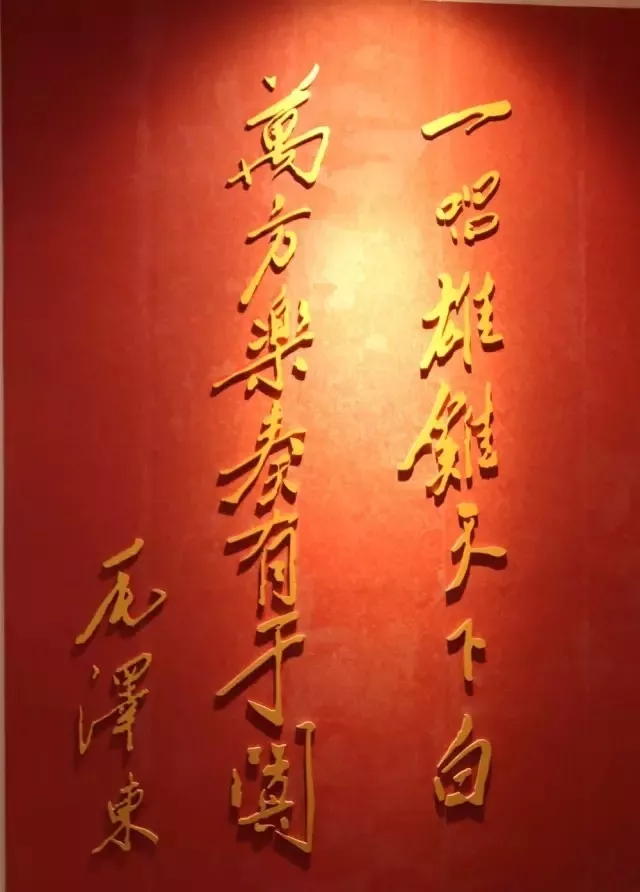 一唱雄鷄天下白
萬方樂奏有于闐
毛澤東